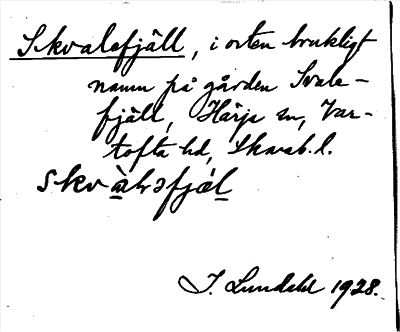 Skvalefjäll, i orten brukligt
namn på gården Svale-
fjäll, Härja sn, Var-
tofta hd, Skarab. l.
J. Lundahl 1928.